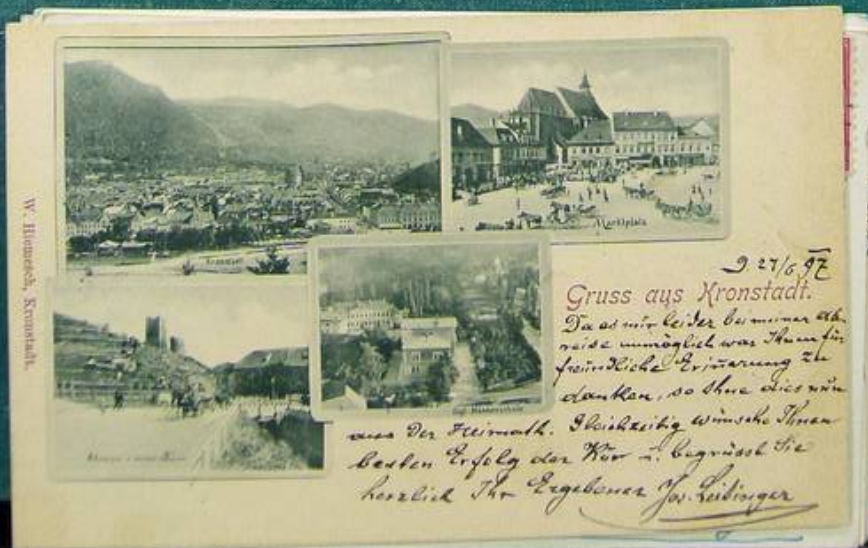 W. Hiemesch, Kronstadt.
Kronstadt
Marktplatz
27/6 97
Gruss aus Kronstadt.
Da es mir leider bei meiner Ab-
reise unmöglich war Ihnen für
freundliche Erinnerung zu
danken, so thue dies nun
aus der Heimath. Gleichzeitig wünsche Ihnen
besten Erfolg der Kur u. begrüsst Sie
herzlich Ihr Ergebener Jos. Leibinger